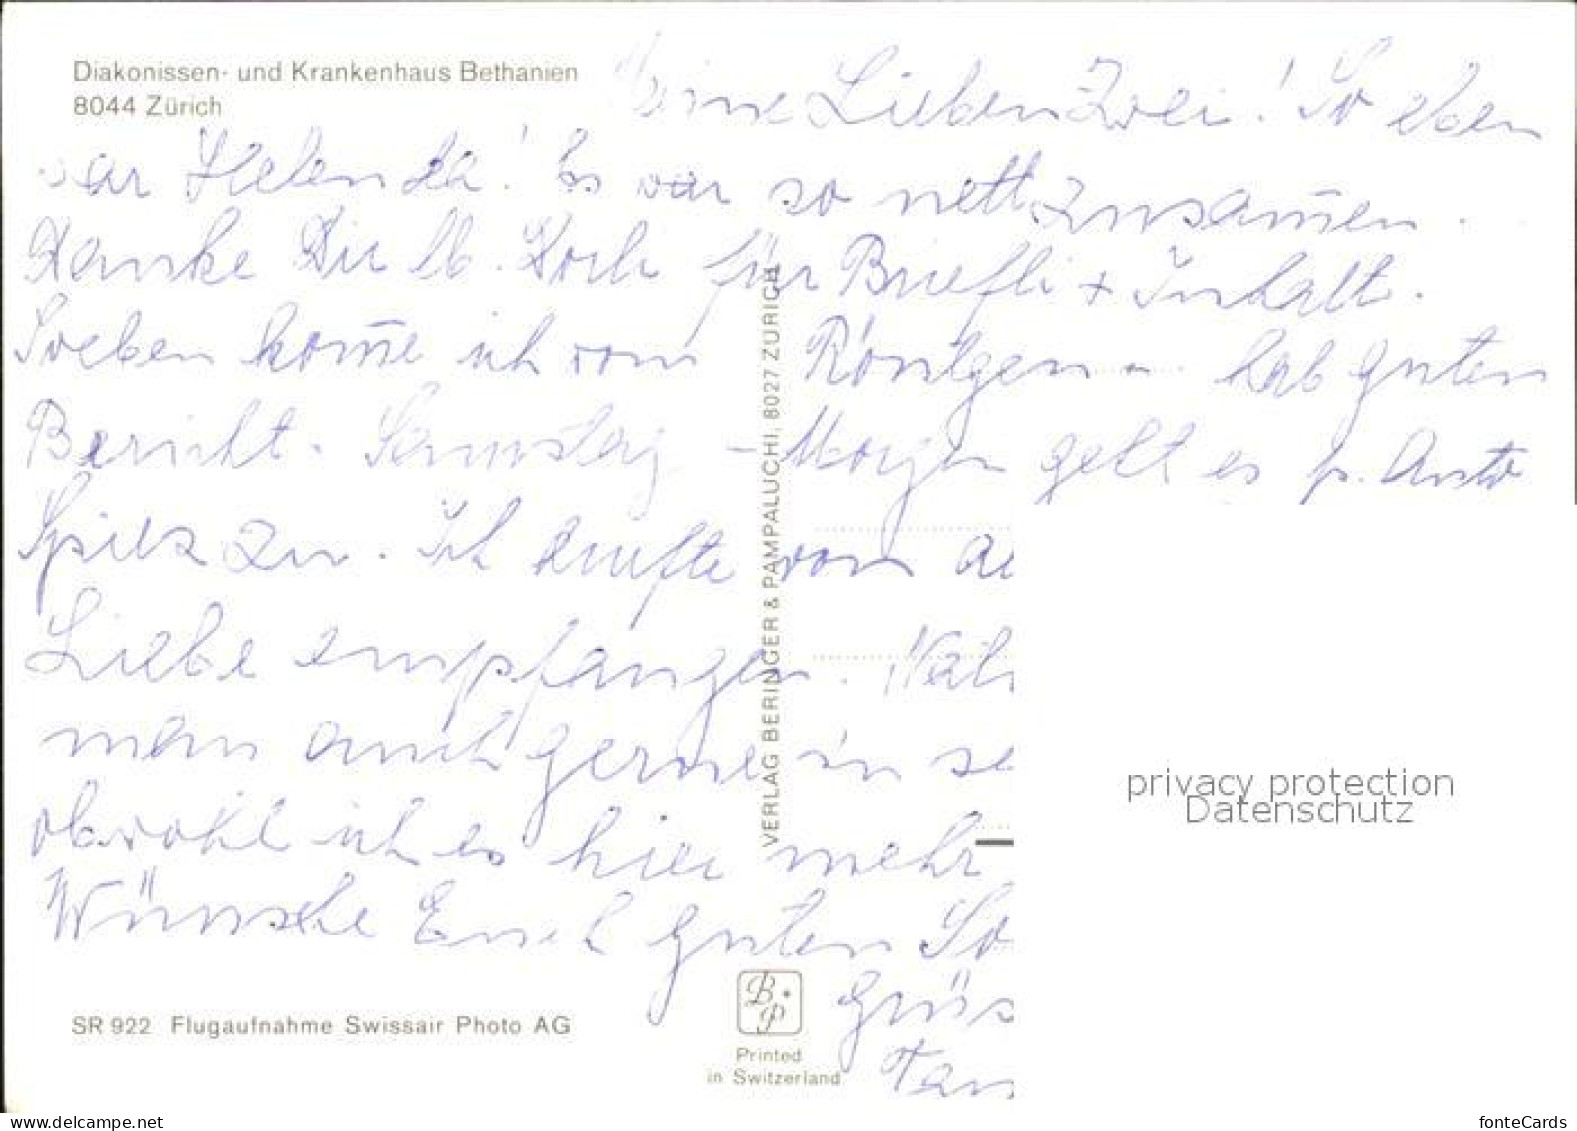 Diakonissen- und Krankenhaus Bethanien
8044 Zürich
Meine Lieben Zwei! So eben
war Helen da! Es war so nett zusam̄en.
Danke Dir lb. für Briefli + Inhalt.
Soeben kom̄e ich vom Röntgen - hab guten
Bericht. Samstag - Morgen geht es p. Auto
Spiez zu. Ich durfte von
Liebe empfangen.
man auch gerne in
obwohl ich es hier mehr
Wünsche Euch guten So
Grüs
Tan
VERLAG BERINGER & PAMPALUCHI, 8027 ZÜRICH
SR 922 Flugaufnahme Swissair Photo AG
B P
Printed
in Switzerland
privacy protection
Datenschutz
www.delcampe.net
fonteCards